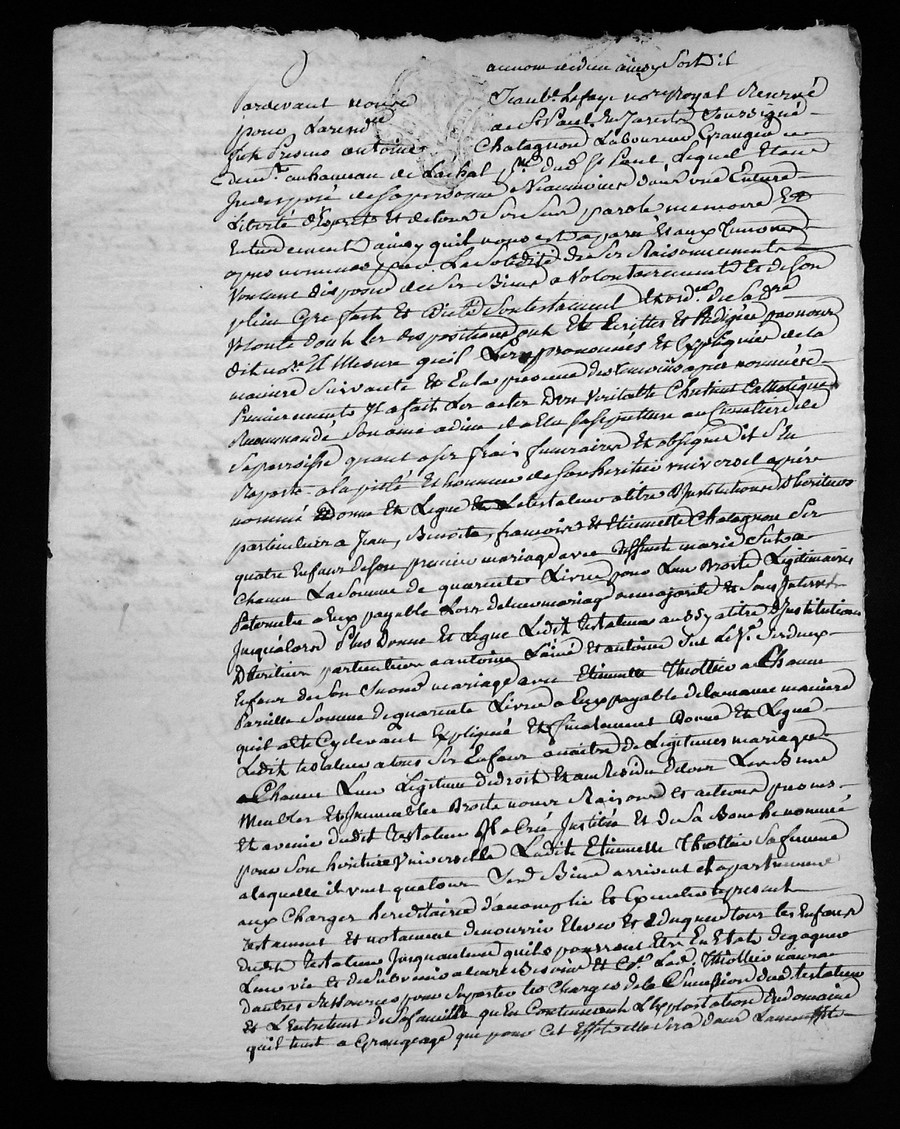 au nom de dieu ainsy Soit Il
Pardevant nous Jean Bte Lafay nore Royal Reservé
pour La residce de St Paul En Jarest Soussigné
fut Presens antoine Chatagnon Laboureur Grangier
demt au hameau de Lachal dud St Paul, Lequel Etant
Indisposé de sa personne Neanmoins dans une Entiere
Liberté d'Esprit Et de tous Ses Sens parole memoire Et
Entendement ainsy quil nous est aparu Et aux temoins
apres nommés par La solidité de Ses Raisonnements
Voulant disposer de Ses Biens a Volontairement Et de Son
plein Gré fait Et dicté Son testament Et ordce de Sa dre
Volonté dont Les dispositions ont Eté Ecrittes Et Redigées par nous
dit nore a Mesure quil Les a prononcées Et Expliquées de la
maniere Suivante Et En la presence des temoins apres nommés
Premierement Il a fait Les actes D'un Veritable Chretient Catholique
Recommandé Son ame a dieu Elu Sa Sepulture au Cimetiere de
Sa parroisse quant a Ses frais funeraires Et obseques Il S'En
Raporte a la pieté Et honneur de Son heritier universel apres
nommé Donne Et Legue Le testateur a titre D'Institution D'heritiers
particuliers a Jean, Benoite, françoise Et Etiennette Chatagnon Ses
quatre Enfans de Son premier mariage avec deffunte marie
Chacun La Somme de quarente Livres pour Leur Droits Legitimaires
Paternels a Eux payable Lors de leur mariage ou majorité Et Sans Interest
Jusqu'alors Plus Donne Et Legue Ledit testateur aussy a titre D'Institution
D'heritiers particuliers a antoine L'ainé Et antoine Ses deux
Enfans de Son Second mariage avec Etiennette Thiollier a Chacun
Pareille Somme de quarente Livres a Eux payable de la meme maniere
quil a Eté Cy devant Expliqué Et finalement Donne Et Legue
Ledit testateur a tous Ses Enfans a naitre de Legitimes mariages
a Chacun Leur Legitime de droit Et au Residu de tous Ses Biens
Meubles Et Immeubles Droits noms Raisons Et actions presens
Et avenir Ledit testateur Il a Créé Institué Et de Sa Bouche nommé
pour Son heritiere Universelle Ladite Etiennette Thiollier Sa femme
a laquelle il veut que tous Sesd Biens arrivent Et apartiennent
aux Charges hereditaires d'acomplir Et Executer le present
testament Et notament de nourrir Elever Et Eduquer tous les Enfans
dudit testateur Jusquauteur quils pourront Etre En Etats de gagner
Leur vie Et de Subvenir a leurs Besoins Et Ce Lad. Thiollier n'aura
d'autres Ressources pour Suporter les Charges de la Succession dud testateur
Et L'Entretient de Sa famille qu'En Continuant L'Exploitation du domaine
quil tient a Grangeage que pour Cet Effet elle Sera dans